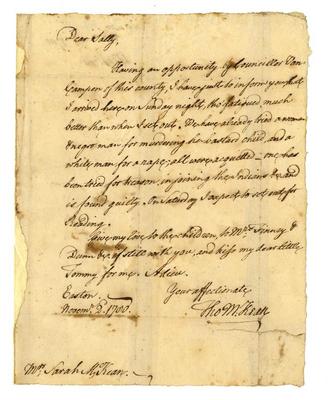 Dear Sally,
Having an opportunity by Councillor Van
Campen of this county, I have just to inform you that
I arrived here on Sunday night, tho' fatigued much
better than when I set out. We have already tried a woman
& negro man for murdering her bastard child, and a
white man for a rape; all were acquitted — one has
been tried for treason, in joining the Indians & and
is found guilty. On Saturday I expect to set out for
Reading.
Give my love to the children, to Mrs. Finney &
if still with you, and kiss my dear little
Tommy for me. Adieu.
Your affectionate
Easton
Tho M:Kean
Novemr. 2. 1780.
Mrs. Sarah McKean.